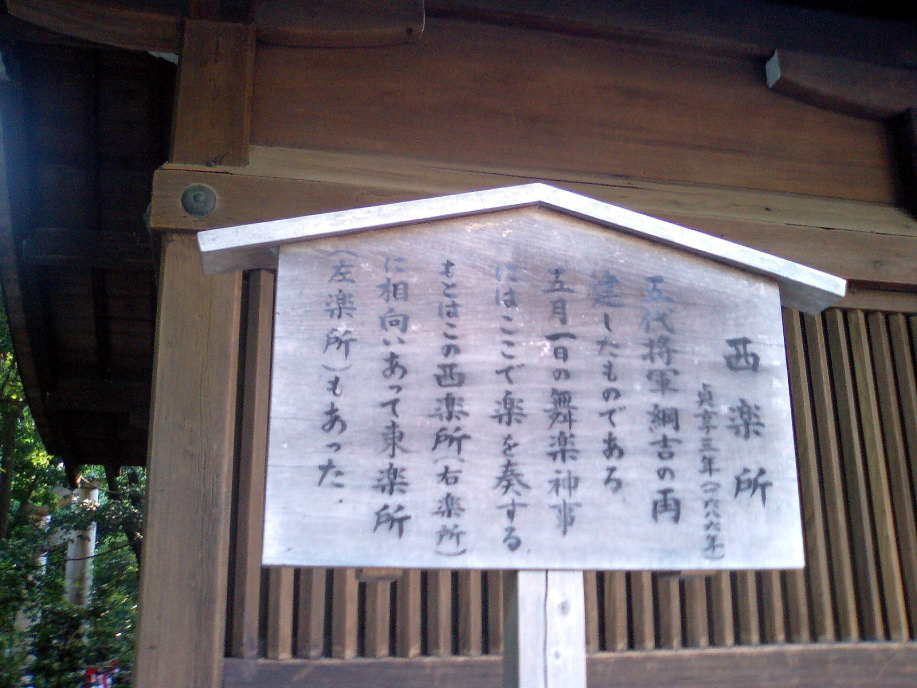 西楽所
貞享三年(一六八六年)
五代将軍綱吉の再
建したものである
五月一日の舞楽神事
にはここで楽を奏する
もとはこの西楽所(右楽所)
に相向いあって東楽所
(左楽所)もあった